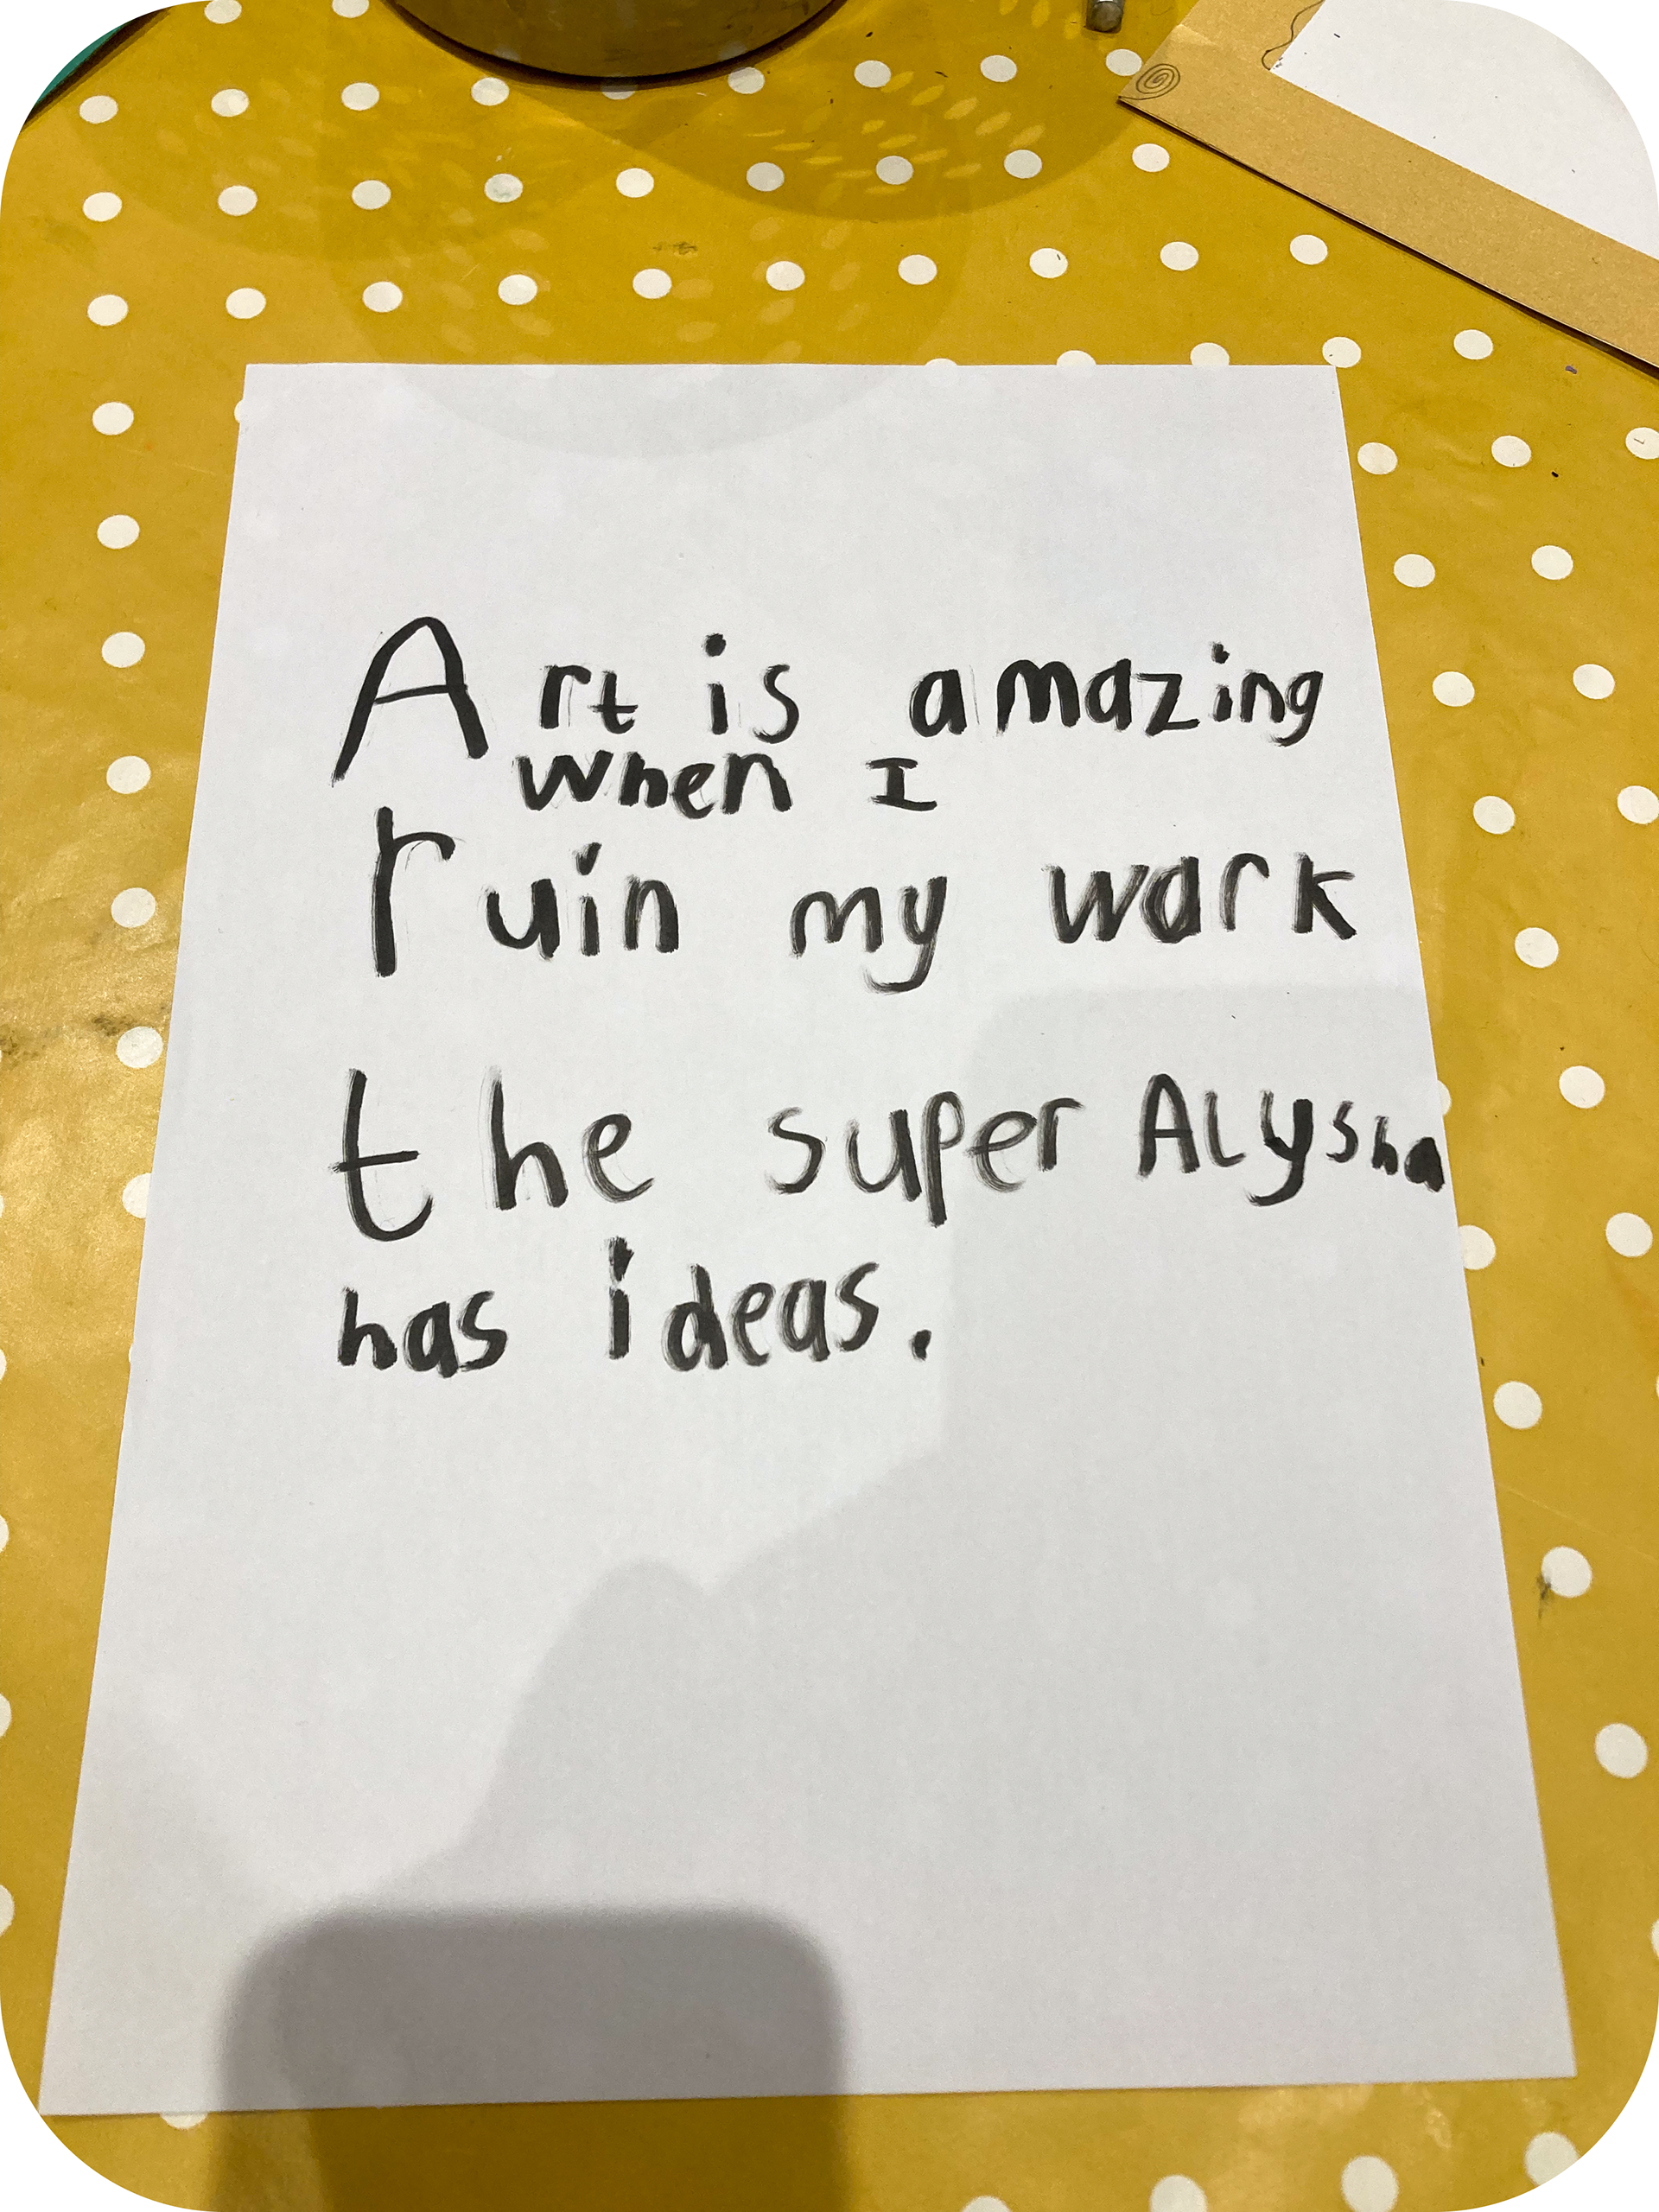 Art is amazing
when I
ruin my work
the super Alysha
has ideas.